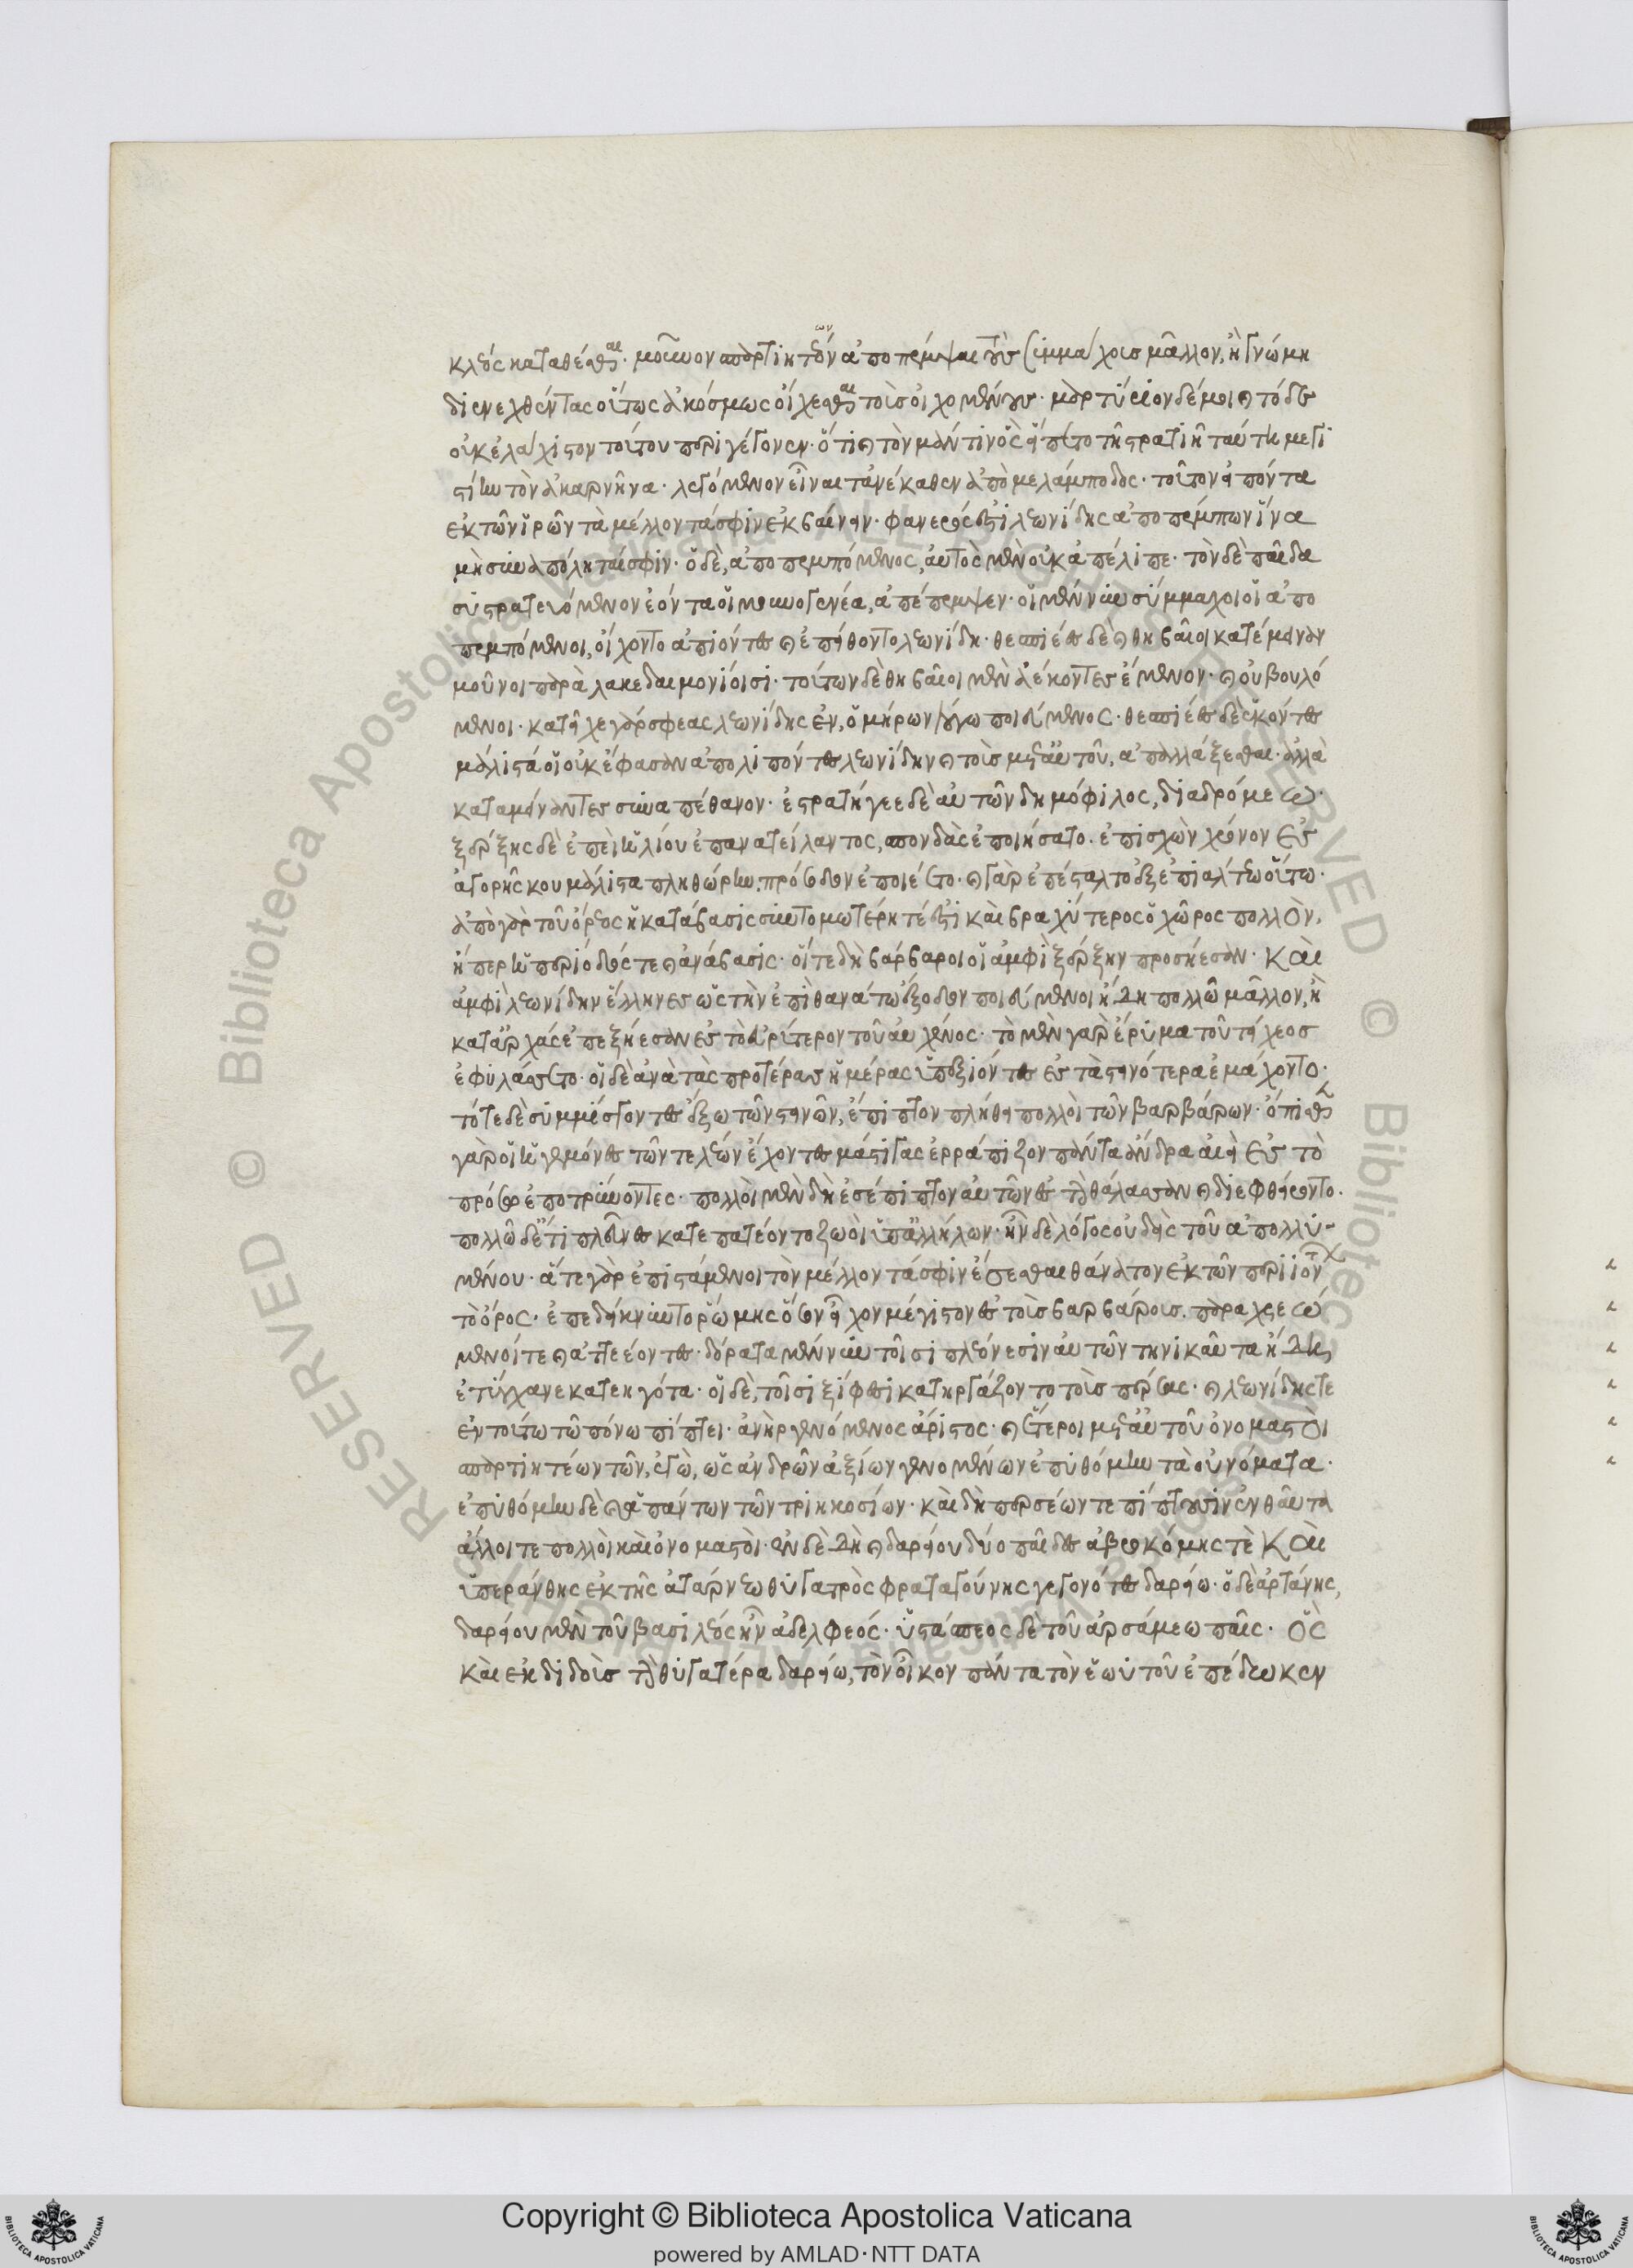 κλέος καταθέσθαι· μοῦνον σπαρτιητέων ἀποπέμψαι τοὺς συμμάχους μᾶλλον, ἢ γνώμη
διενεχθέντας οὕτως ἀκόσμως οἴχεσθαι τοὺς οἰχομένους· μαρτύριον δέ μοι καὶ τόδε
οὐκ ἐλάχιστον τούτου πέρι γέγονεν· ὅτι καὶ τὸν μάντιν ὃς εἵπετο τῆ στρατιῆ ταύτη μεγι
στίην τὸν ἀκαρνῆνα· λεγόμενον εἶναι τἀνέκαθεν ἀπὸ μελάμποδος· τοῦτον εἰπόντα
ἐκ τῶν ἱρῶν τὰ μέλλοντά σφιν ἐκβαίνειν· φανερός ἐστι λεωνίδης ἀποπέμπων ἵνα
μὴ συναπόληταί σφιν· ὁ δὲ, ἀποπεμπόμενος, αὐτὸς μὲν οὐκ ἀπέλιπε· τὸν δὲ παῖδα
συστρατευόμενον ἐόντα οἱ μουνογενέα, ἀπέπεμψεν· οἱ μέν νυν σύμμαχοι οἱ ἀπο
πεμπόμενοι, οἴχοντο ἀπιόντες καὶ ἐπείθοντο λεωνίδη· θεσπιέες δὲ καὶ θηβαῖοι κατέμειναν
μοῦνοι παρὰ λακεδαιμονίοισι· τούτων δὲ θηβαῖοι μὲν ἀέκοντες ἔμενον· καὶ οὐ βουλό
μενοι· κατεῖχε γάρ σφεας λεωνίδης ἐν ὁμήρων λόγω ποιεύμενος· θεσπιέες δὲ ἑκόντες
μάλιστα οἳ οὐκ ἔφασαν ἀπολιπόντες λεωνίδην καὶ τοὺς μετ' αὐτοῦ, ἀπαλλάξεσθαι· ἀλλὰ
καταμείναντες συναπέθανον· ἐστρατήγεε δὲ αὐτῶν δημόφιλος, διαδρόμεω·
ξέρξης δὲ ἐπεὶ ἡλίου ἐπανατείλαντος, σπονδὰς ἐποιήσατο· ἐπισχὼν χρόνον ἐς
ἀγορῆς κου μάλιστα πληθώρην, πρόσοδον ἐποιέετο· καὶ γὰρ ἐπέσταλτο ἐξ ἐπιάλτεω οὕτω·
ἀπὸ γὰρ τοῦ ὄρεος ἡ κατάβασις συντομωτέρη τέ ἐστι καὶ βραχύτερος ὁ χῶρος πολλὸν,
ἤπερ ἡ περίοδός τε καὶ ἀνάβασις· οἵ τε δὴ βάρβαροι οἱ ἀμφὶ ξέρξην προσήεσαν· καὶ
ἀμφὶ λεωνίδην ἕλληνες ὡς τὴν ἐπὶ θανάτω ἔξοδον ποιεύμενοι ἤδη πολλῶ μᾶλλον, ἢ
κατ' ἀρχὰς ἐπεξήεσαν ἐς τὸ εὐρύτερον τοῦ αὐχένος· τὸ μὲν γὰρ ἔρυμα τοῦ τείχεος
ἐφυλάσσετο· οἱ δὲ ἀνὰ τὰς προτέρας ἡμέρας ὑπεξιόντες ἐς τὰ στεινότερα ἐμάχοντο·
τότε δὲ συμμίσγοντες ἔξω τῶν στεινῶν, ἔπιπτον πλήθει πολλοὶ τῶν βαρβάρων· ὄπισθεν
γὰρ οἱ ἡγεμόνες τῶν τελέων ἔχοντες μάστιγας ἐρράπιζον πάντα ἄνδρα αἰεὶ ἐς τὸ
πρόσω ἐποτρύνοντες· πολλοὶ μὲν δὴ ἐσέπιπτον αὐτῶν ἐς τὴν θάλασσαν καὶ διεφθείροντο·
πολλῶ δ' ἔτι πλεῦνες κατεπατέοντο ζωοὶ ὑπ' ἀλλήλων· ἦν δὲ λόγος οὐδεὶς τοῦ ἀπολλυ-
μένου· ἅτε γὰρ ἐπιστάμενοι τὸν μέλλοντά σφιν ἔσεσθαι θάνατον ἐκ τῶν περιιόντων
τὸ ὄρος· ἐπεδείκνυντο ῥώμης ὅσον εἶχον μέγιστον ἐς τοὺς βαρβάρους· παραχρεώ
μενοί τε καὶ ἀτεέοντες· δόρατα μέν νυν τοῖσι πλέοσιν αὐτῶν τηνικαῦτα ἤδη
ἐτύγχανε κατεηγότα· οἱ δὲ, τοῖσι ξίφεσι κατηργάζοντο τοὺς πέρσας· καὶ λεωνίδης τε
ἐν τούτω τῶ πόνω πίπτει· ἀνὴρ γενόμενος ἄριστος· καὶ ἕτεροι μετ' αὐτοῦ ὀνομαστοὶ
σπαρτιητέων τῶν, ἐγὼ, ὡς ἀνδρῶν ἀξίων γενομένων ἐπυθόμην τὰ οὐνόματα·
ἐπυθόμην δὲ καὶ ἁπάντων τῶν τριηκοσίων· καὶ δὴ περσέων τε πίπτουσιν ἐνθαῦτα
ἄλλοι τε πολλοὶ καὶ ὀνομαστοὶ· ἐν δὲ δὴ καὶ δαρείου δύο παῖδες ἀβροκόμης τὲ καὶ
ὑπεράνθης ἐκ τῆς ἀτάρνεω θυγατρὸς φραταγούνης γεγονότες δαρείω· ὁ δὲ ἀρτάνης,
δαρείου μὲν τοῦ βασιλέος ἦν ἀδελφεός· ὑστάσπεος δὲ τοῦ ἀρσάμεω παῖς· ὃς
καὶ ἐκδιδοὺς τὴν θυγατέρα δαρείω, τὸν οἶκον πάντα τὸν ἑωυτοῦ ἐπέδωκεν
Copyright © Biblioteca Apostolica Vaticana
powered by AMLAD·NTT DATA